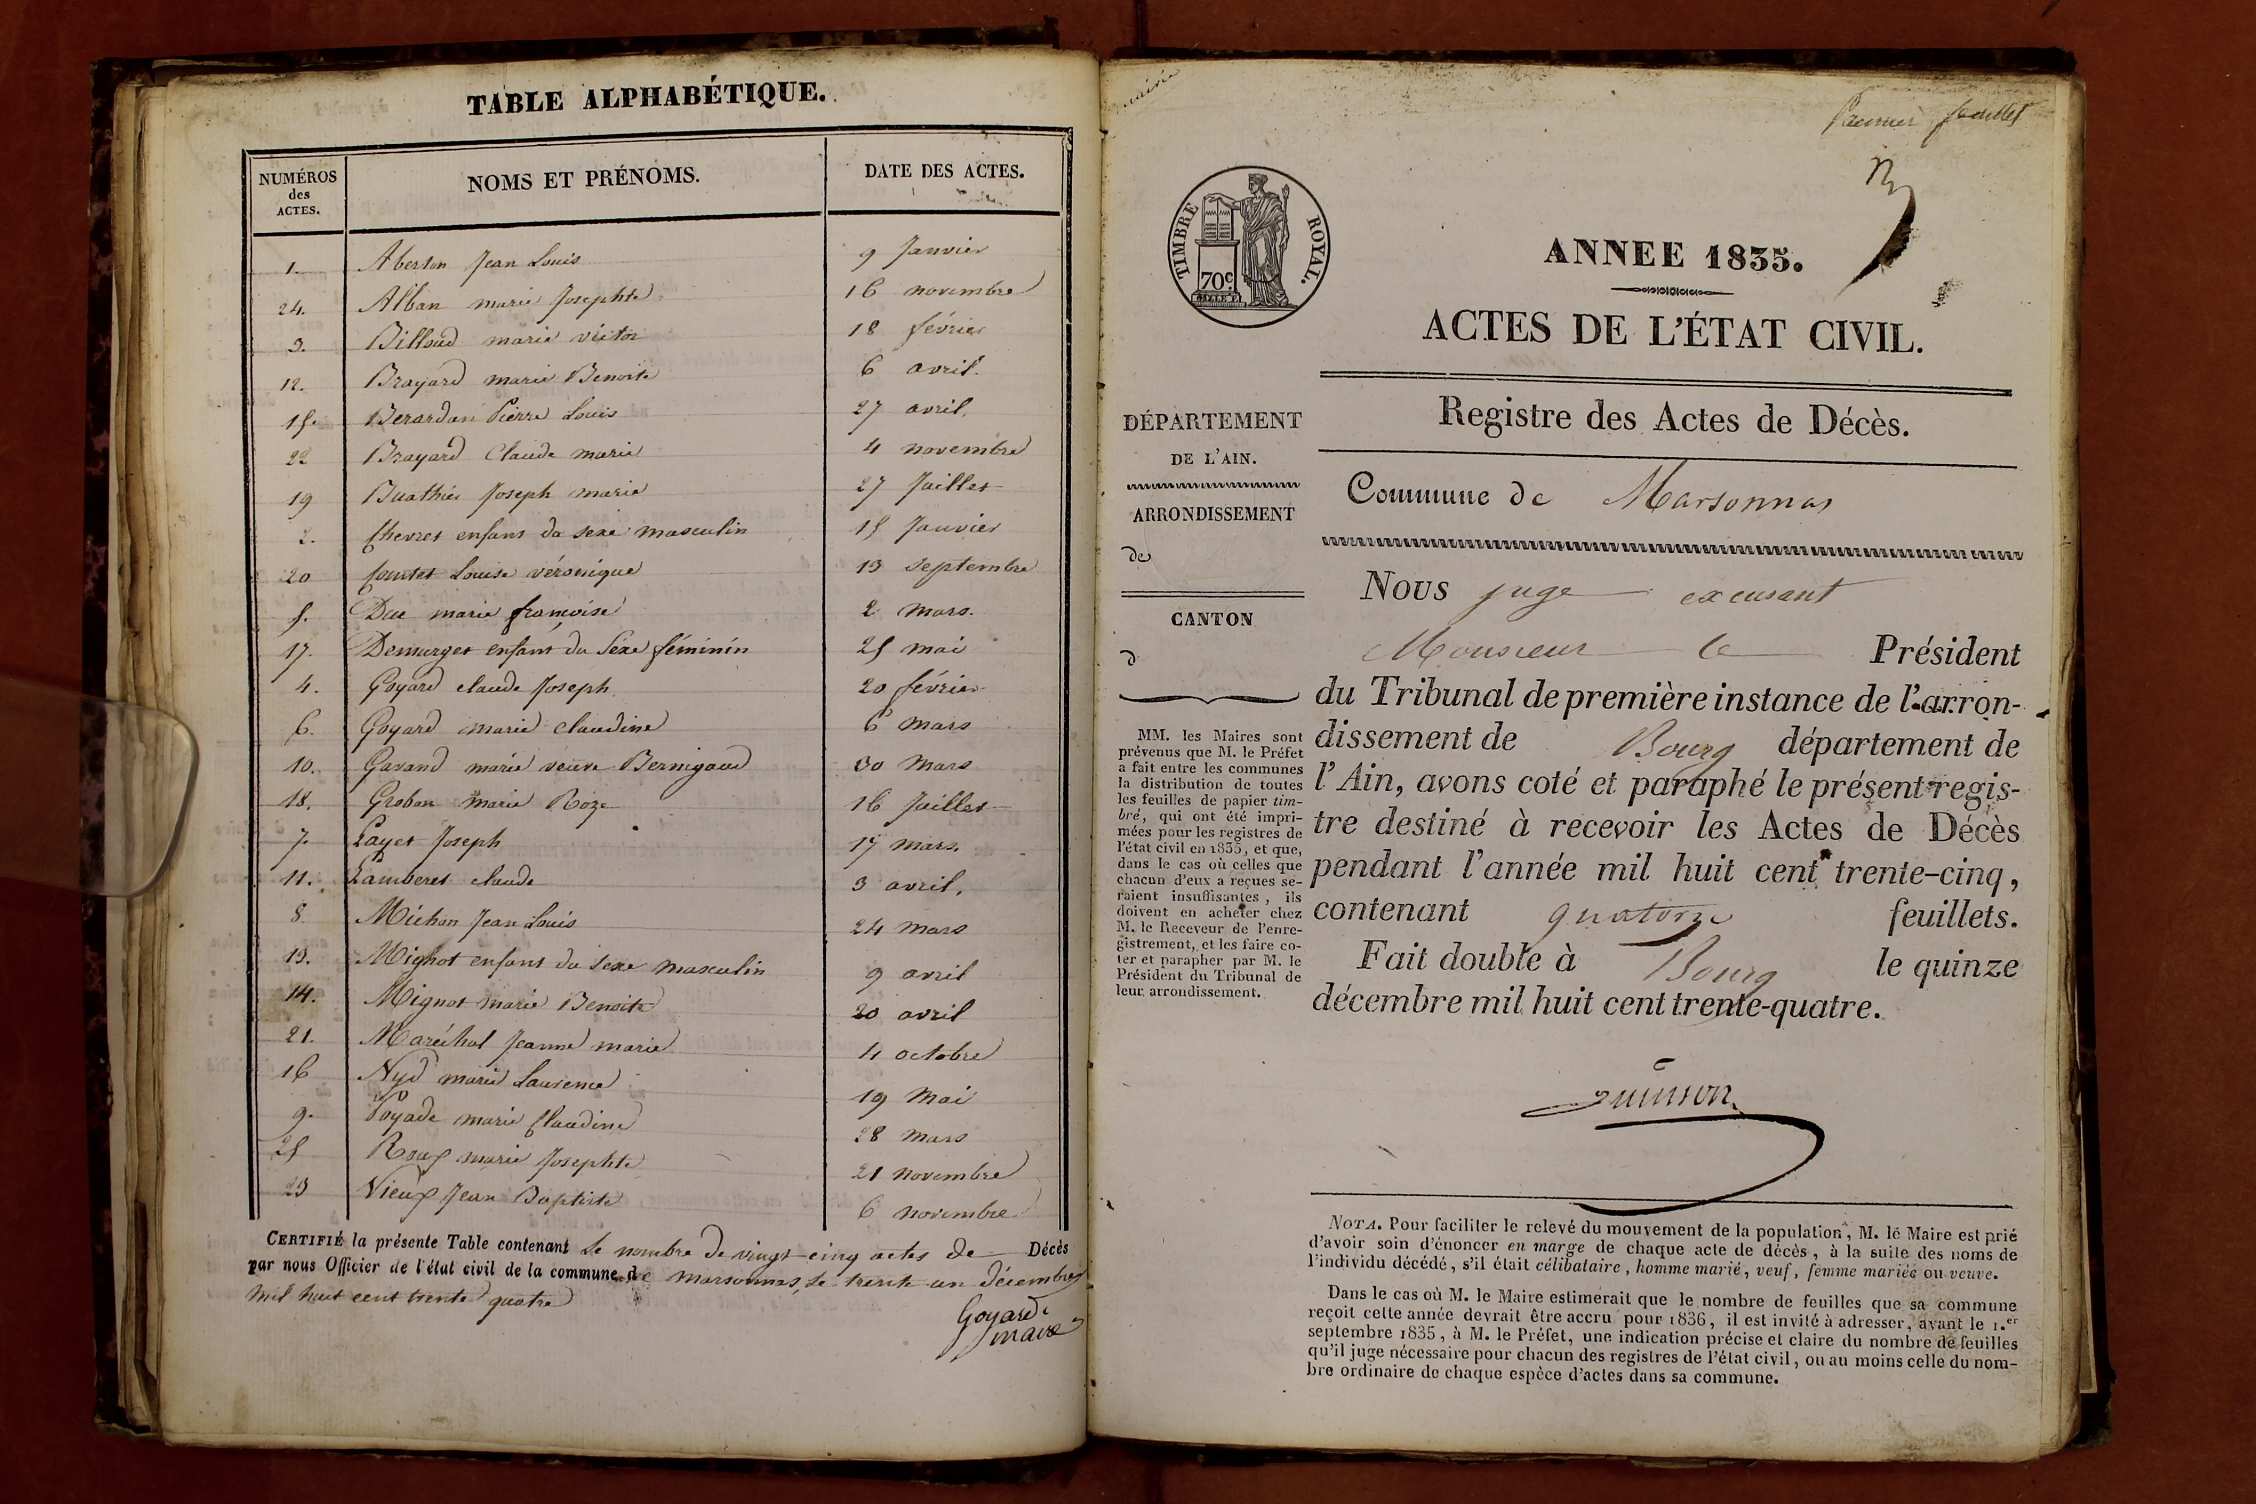 TABLE ALPHABÉTIQUE.
NUMÉROS des ACTES. NOMS ET PRÉNOMS. DATE DES ACTES.
1. Aberton Jean Louis 9 Janvier
24. Alban marie Josephte 16 novembre
3. Billoud marie victor 18 février
12. Brayard marie Benoite 6 avril.
15. Berardan Pierre Louis 27 avril.
22 Brayard Claude marie 4 novembre
19 Buathier Joseph marie 27 Juillet
2. Chevret enfant du sexe masculin 15 Janvier
20 Comtet Louise véronique 13 septembre
5. Duc marie françoise 2 mars.
17. Demurget enfant du Sexe féminin 25 mai
4. Goyard claude Joseph 20 février
6. Goyard marie claudine 6 mars
10. Gavand marie veuve Bernigaud 30 mars
18. Grobon marie Roze 16 Juillet
7. Layet Joseph 17 mars.
11. Lamberet claude 3 avril.
8. Michon Jean Louis 24 mars
13. Mighot enfant du sexe masculin 9 avril
14. Mignot marie Benoite 20 avril
21. Maréchal Jeanne marie 4 octobre
16 Nyd marie Laurence 19 Mai
9. Poyade marie Claudine 28 mars
25 Roux marie Josephte 21 novembre
23 Vieux Jean Baptiste 6 novembre
CERTIFIÉ la présente Table contenant le nombre de vingt-cinq actes de Décès
par nous Officier de l'état civil de la commune de marsonnas, le trente un décembre
mil huit cent trente quatre
Goyard
maire
Premier feuillet
TIMBRE ROYAL.
70c
ANNEE 1835.
ACTES DE L'ÉTAT CIVIL.
Registre des Actes de Décès.
Commune de Marsonnas
DÉPARTEMENT
DE L'AIN.
ARRONDISSEMENT
de
CANTON
d
MM. les Maires sont
prévenus que M. le Préfet
a fait entre les communes
la distribution de toutes
les feuilles de papier tim-
bré, qui ont été impri-
mées pour les registres de
l'état civil en 1835, et que,
dans le cas où celles que
chacun d'eux a reçues se-
raient insuffisantes, ils
doivent en acheter chez
M. le Receveur de l'enre-
gistrement, et les faire co-
ter et parapher par M. le
Président du Tribunal de
leur arrondissement.
Nous juge excusant
Monsieur le Président
du Tribunal de première instance de l'arron-
dissement de Bourg département de
l'Ain, avons coté et paraphé le présent regis-
tre destiné à recevoir les Actes de Décès
pendant l'année mil huit cent trente-cinq,
contenant quatorze feuillets.
Fait double à Bourg le quinze
décembre mil huit cent trente-quatre.
NOTA. Pour faciliter le relevé du mouvement de la population, M. le Maire est prié
d'avoir soin d'énoncer en marge de chaque acte de décès, à la suite des noms de
l'individu décédé, s'il était célibataire, homme marié, veuf, femme mariée ou veuve.
Dans le cas où M. le Maire estimerait que le nombre de feuilles que sa commune
reçoit cette année devrait être accru pour 1836, il est invité à adresser, avant le 1.er
septembre 1835, à M. le Préfet, une indication précise et claire du nombre de feuilles
qu'il juge nécessaire pour chacun des registres de l'état civil, ou au moins celle du nom-
bre ordinaire de chaque espèce d'actes dans sa commune.